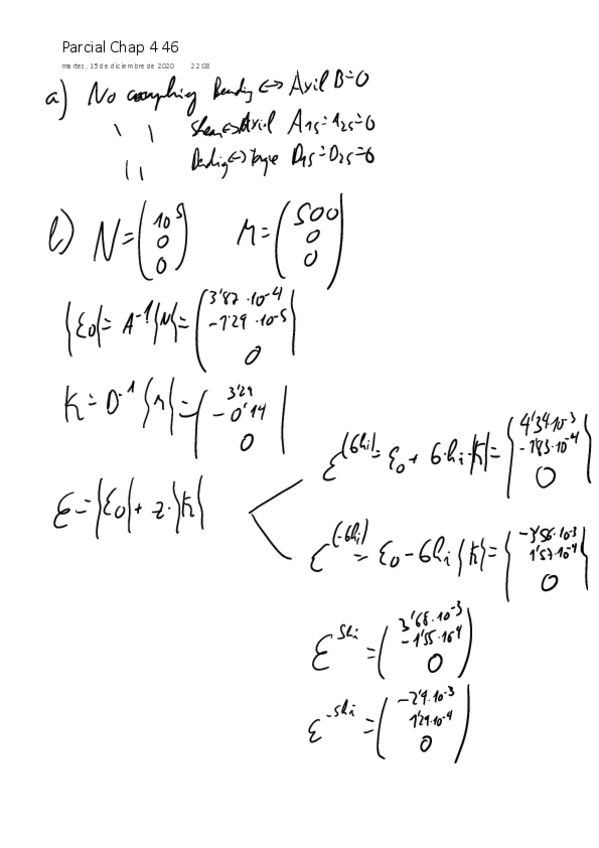 Parcial Chap 4 46
martes, 15 de diciembre de 2020 22:08
a) No coupling Bending ↔ Axil B=0
\ | Shear↔Axil A₁₅=A₂₅=0
| | D₁₅=D₂₅=0
b) N=(10⁵ 0 0) M=(500 0 0)
{ε₀}=A⁻¹{N}=(3'87·10⁻⁴ 0)
K=D⁻¹{M}=(3'29 -0'14 0)
ε={ε₀}+z·{K}
ε^(6hi)=ε₀+6·hi·{K}={4'34·10⁻³ -1'83·10⁻⁴ 0}
ε^(-6hi)=ε₀-6hi{K}={-3'56·10⁻³ 1'57·10⁻⁴ 0}
ε^5hi=(3'68·10⁻³ -1'55·10⁻⁴ 0)
ε^-5hi=(-2'9·10⁻³ 1'29·10⁻⁴ 0)